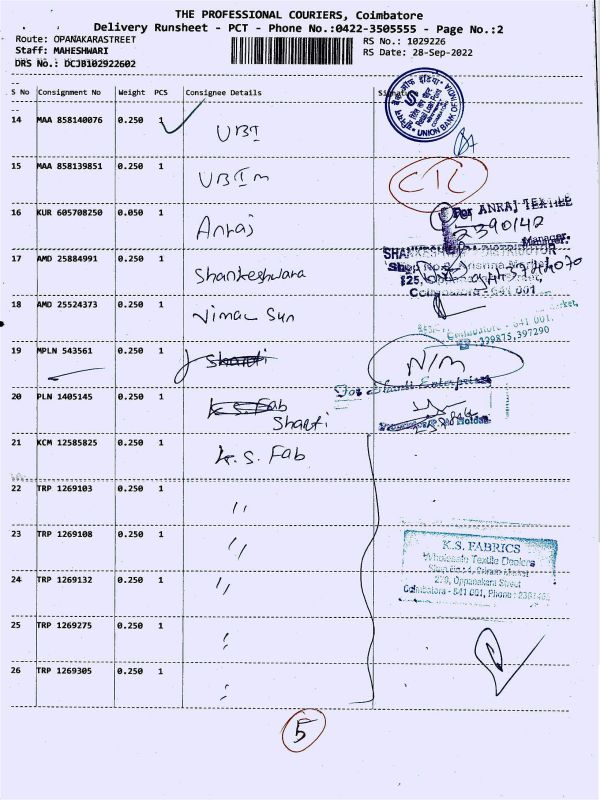 THE PROFESSIONAL COURIERS, Coimbatore
Delivery Runsheet - PCT - Phone No.:0422-3505555 - Page No.:2
Route: OPANAKARASTREET
RS No.: 1029226
Staff: MAHESHWARI
RS Date: 28-Sep-2022
DRS No.: DCJB102922602
S No Consignment No Weight PCS Consignee Details Signature
14 MAA 858140076 0.250 1 UBI
UNION BANK OF INDIA
15 MAA 858139851 0.250 1 UBIM CTL
16 KUR 605708250 0.050 1 Anraj
For ANRAJ TEXTILE
2390142
Manager.
17 AMD 25884991 0.250 1 Shankeshwara
Coimbatore - 641 001
18 AMD 25524373 0.250 1 Vimal Sun
Coimbatore - 641 001.
19 MPLN 543561 0.250 1 Shanti N/M
For Shanti Enterprises
20 PLN 1405145 0.250 1 K.S. Fab
Shanti
21 KCM 12585825 0.250 1 K.S. Fab
22 TRP 1269103 0.250 1 "
23 TRP 1269108 0.250 1 "
K.S. FABRICS
Wholesale Textile Dealers
Shop No : 4, Sriram Market
Oppanakara Street
Coimbatore - 641 001, Phone :
24 TRP 1269132 0.250 1 "
25 TRP 1269275 0.250 1 "
26 TRP 1269305 0.250 1 "
5